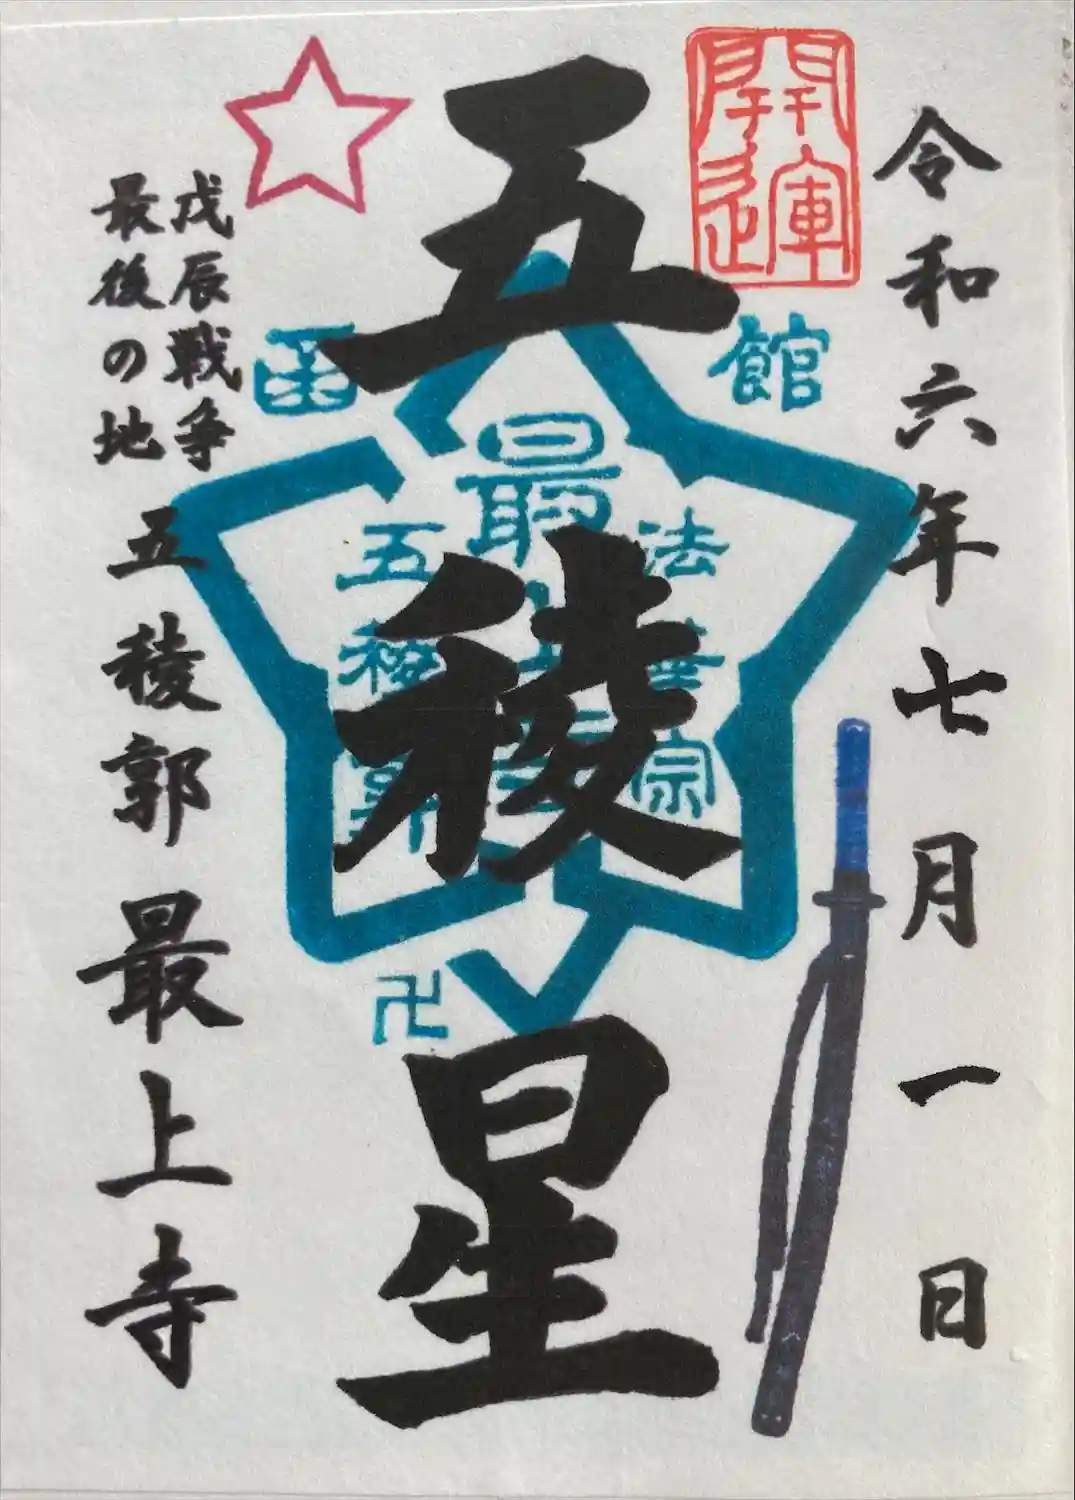 令和六年七月一日
開運
五稜星
函館
法華宗
最上寺
五稜郭
卍
戊辰戦争
最後の地
五稜郭最上寺